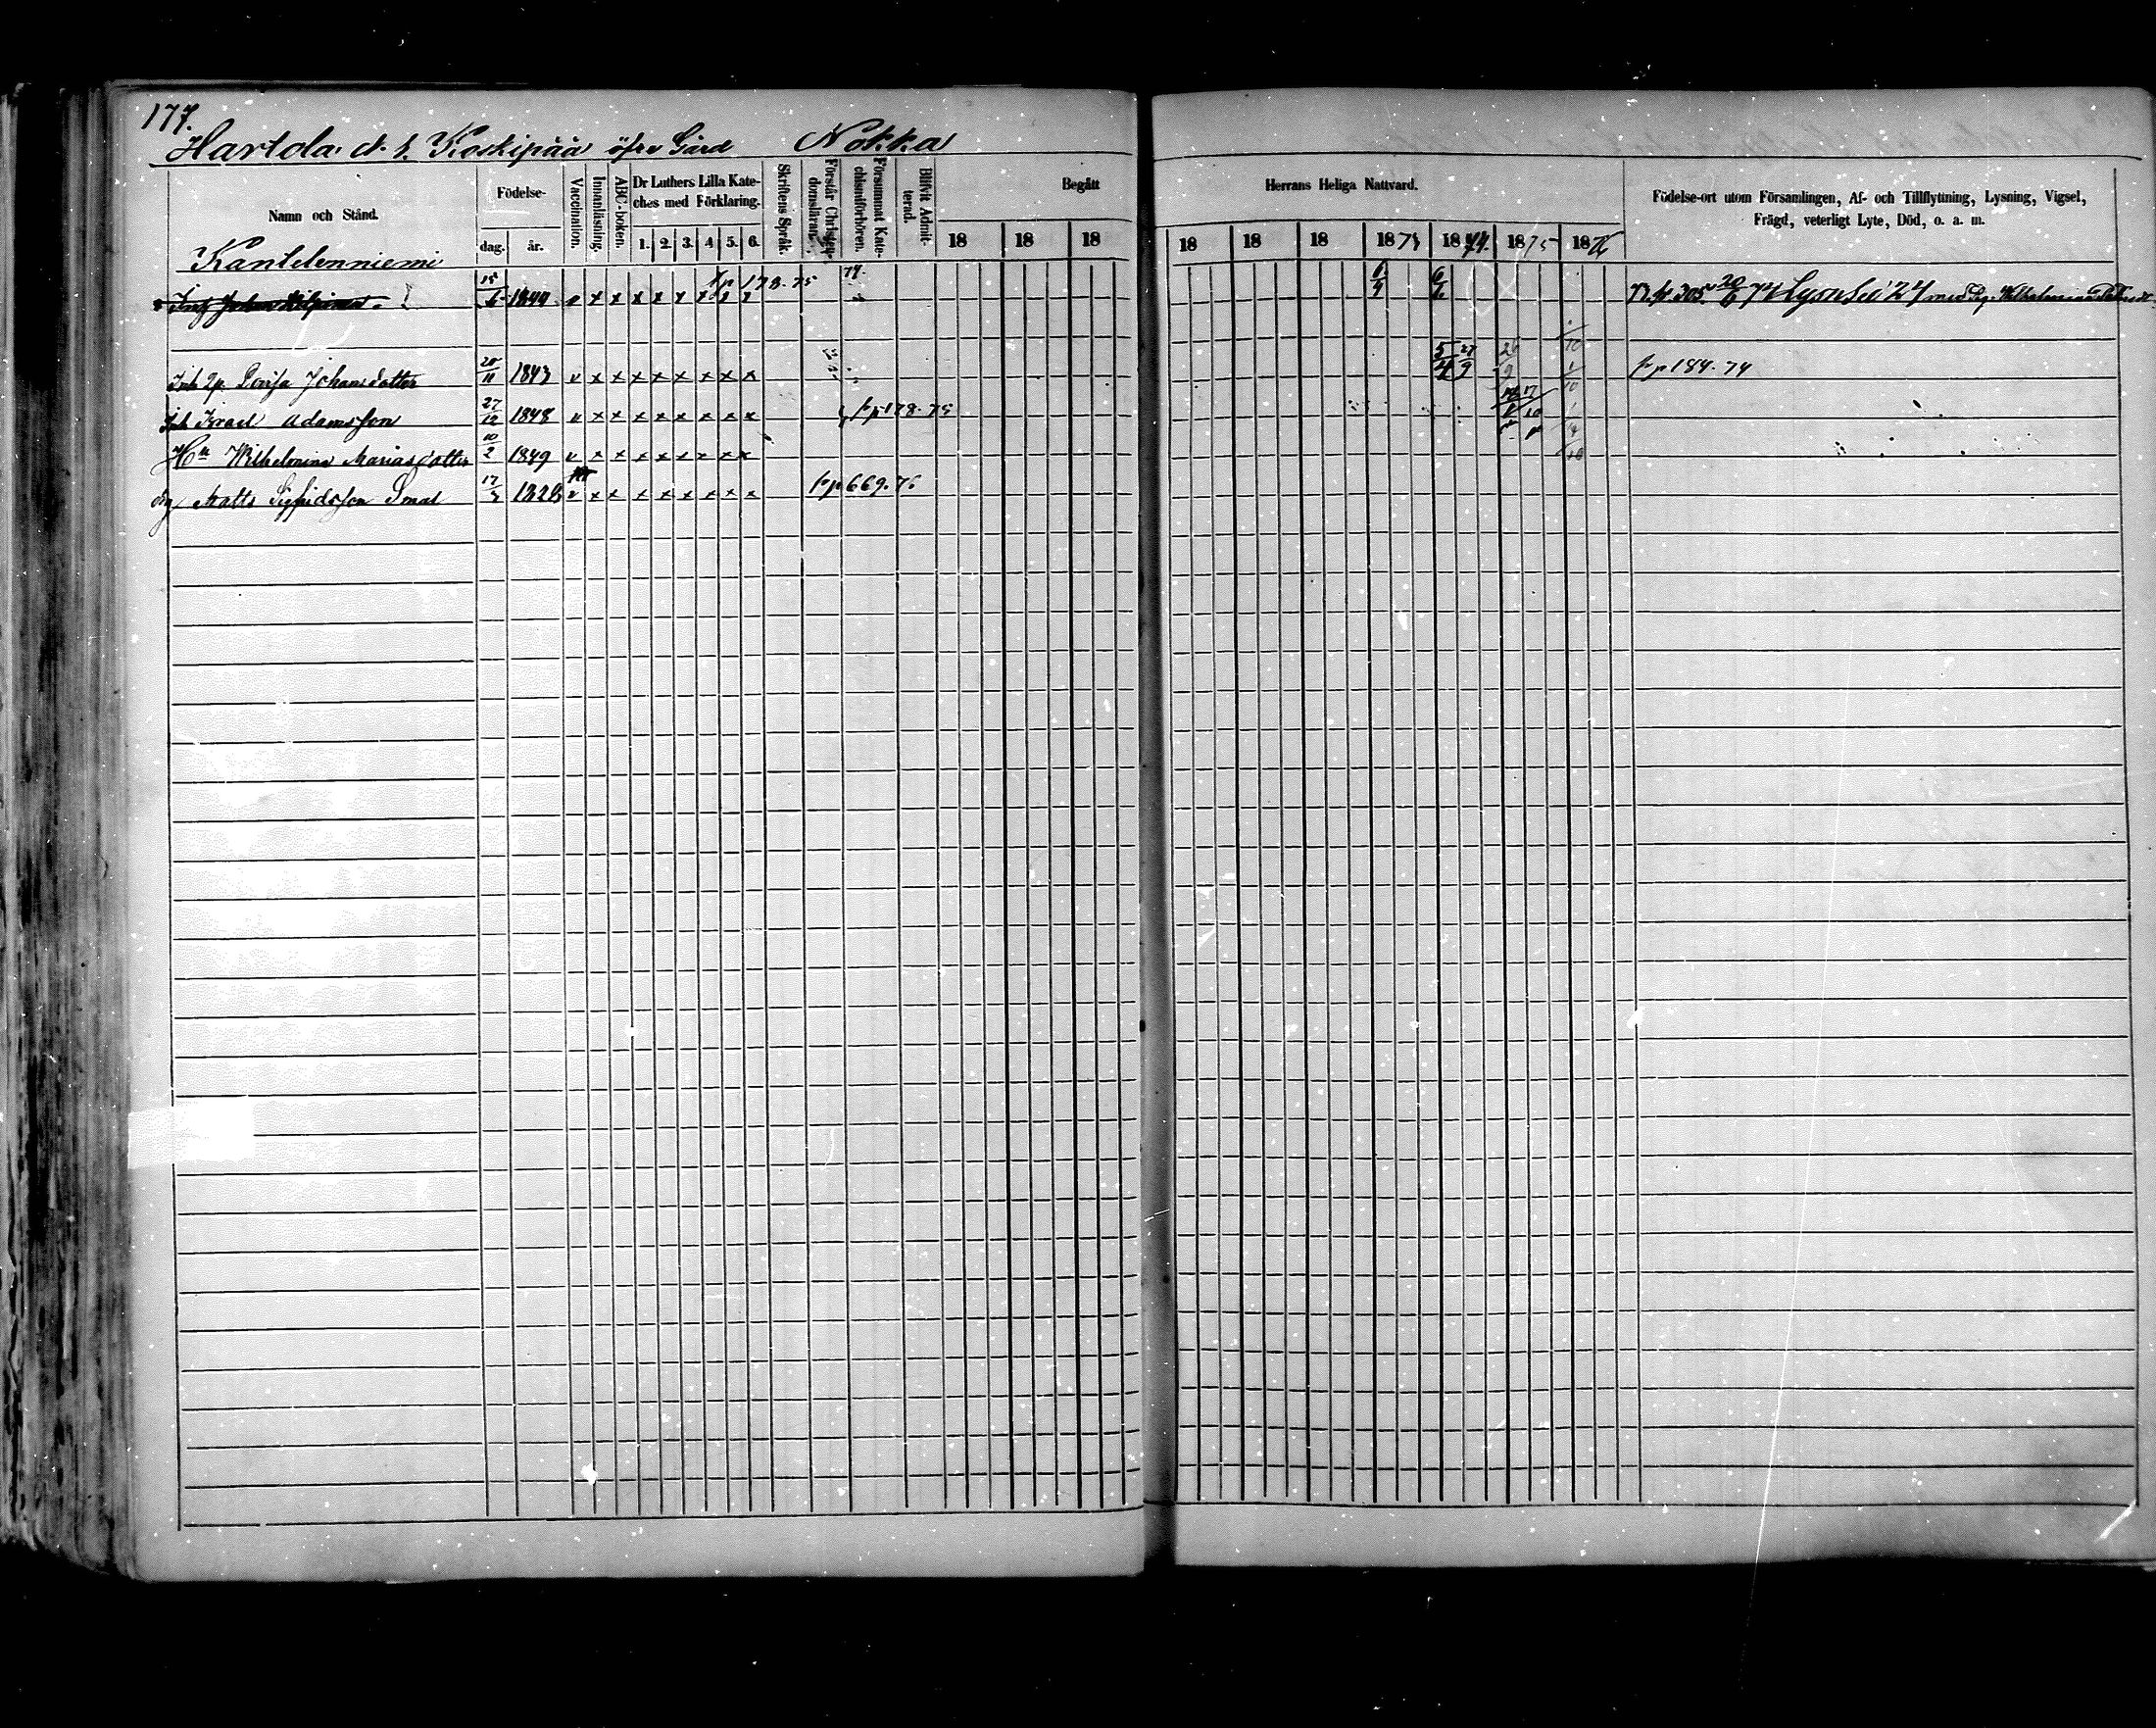 177.
Hartola. N. 1. Koskipää öfre Gård Nokka
Namn och Stånd.
Födelse-
dag. år.
Vaccination.
Innanläsning.
ABC-boken.
Dr Luthers Lilla Kate-
ches med Förklaring.
1. 2. 3. 4. 5. 6.
Skriftens Språk.
Förstår Christen-
domsläran.
Försummat Kate-
chismiförhören.
Blifvit Admit-
terad.
Begått
18 18 18
Herrans Heliga Nattvard.
18 18 18 1873 1874. 1875 1876
Födelse-ort utom Församlingen, Af- och Tillflyttning, Lysning, Vigsel,
Frägd, veterligt Lyte, Död, o. a. m.
Kantelenniemi
15/6 1849 v x x x x x x x x fr p 178. 75 74. 6/4 6/6 fr. p. 305 20/6 74 Lysn
Inh Lovisa Johansdotter 28/11 1843 v x x x x x x x x 5/4 27/9 fr p 184. 74
Inh Israel Adamsson 27/12 1848 v x x x x x x x x fr p 178. 75
Hu Wilhelmina Mariasdotter 10/2 1849 v x x x x x x x x
Matts Sigfridsson 17/3 1828 v x x x x x x x x fr p 669. 76